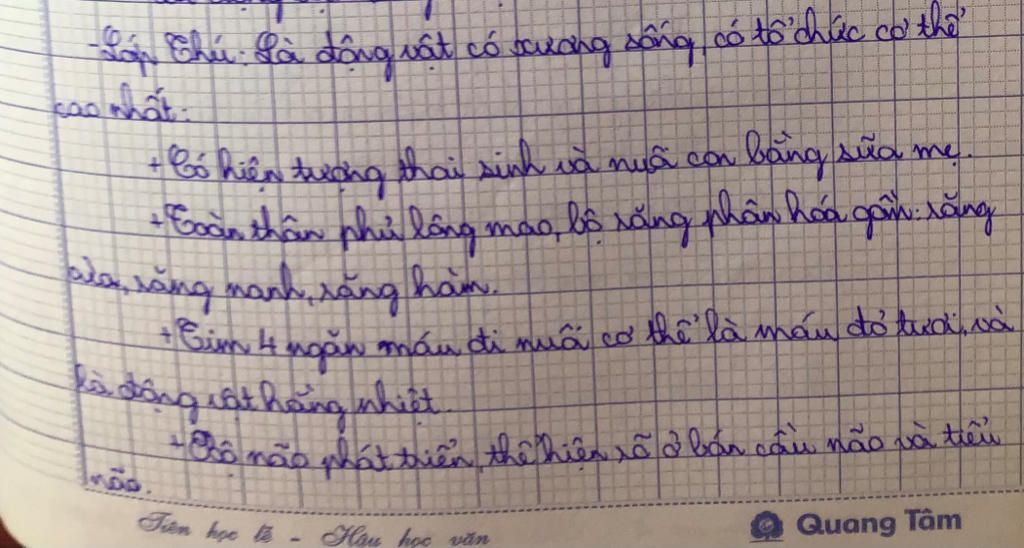 - Lớp Thú: Là động vật có xương sống, có tổ chức cơ thể
cao nhất.
+ Có hiện tượng thai sinh và nuôi con bằng sữa mẹ.
+ Toàn thân phủ lông mao, bộ răng phân hóa gồm: răng
cửa, răng nanh, răng hàm.
+ Tim 4 ngăn máu đi nuôi cơ thể là máu đỏ tươi, và
là động vật hằng nhiệt.
+ Bộ não phát triển, thể hiện rõ ở bán cầu não và tiểu
não.
Tiên học lễ - Hậu học văn
Quang Tâm